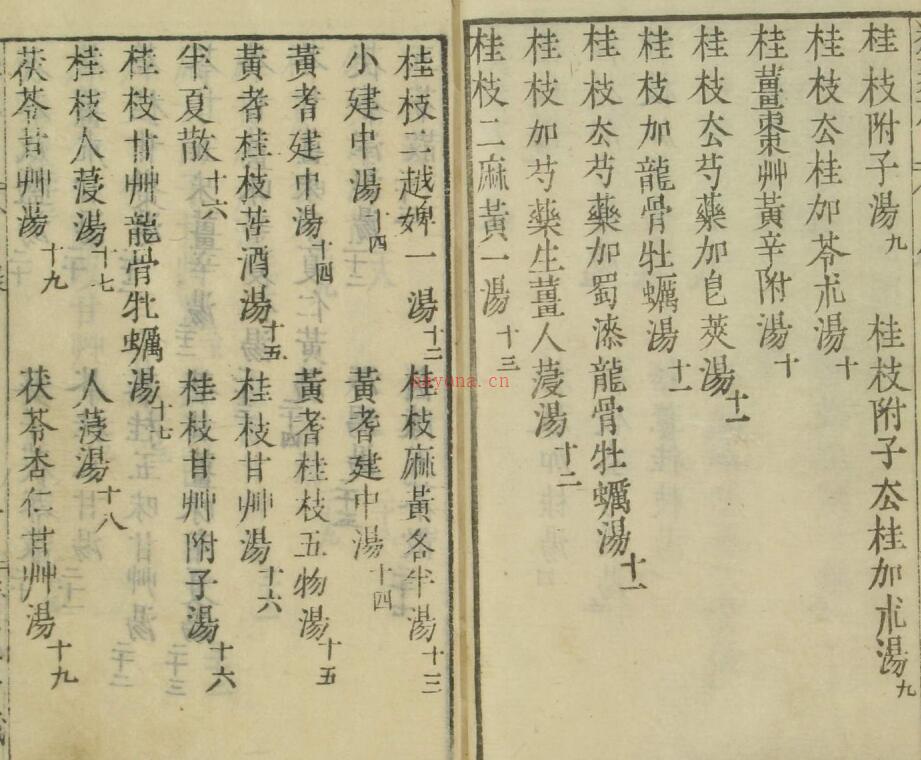 桂枝附子湯九 桂枝附子厺桂加朮湯九
桂枝厺桂加苓朮湯十
桂薑棗艸黃辛附湯十
桂枝厺芍藥加皂莢湯十一
桂枝加龍骨牡蠣湯十一
桂枝厺芍藥加蜀漆龍骨牡蠣湯十一
桂枝加芍藥生薑人蓡湯十二
桂枝二麻黃一湯十三
桂枝二越婢一湯十二 桂枝麻黃各半湯十三
小建中湯十四 黃耆建中湯十四
黃耆建中湯十四 黃耆桂枝五物湯十五
黃耆桂枝苦酒湯十五 桂枝甘艸湯十六
半夏散十六 桂枝甘艸附子湯十六
桂枝甘艸龍骨牡蠣湯十七
桂枝人蓡湯十七 人蓡湯十八
茯苓甘艸湯十九 茯苓杏仁甘艸湯十九
nayona.cn